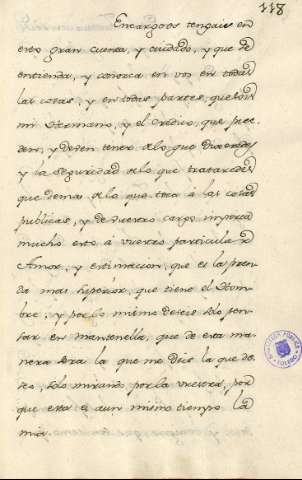 118
Encargoos tengais en
eso gran cuenta, y cuidado, y que se
entienda, y conozca en vos en todas
las cosas, y en todas partes, que sois
mi Hermano, y el credito, que pue
den, y deven tener de lo que dixeredes
y la seguridad de lo que trataredes
que demas de lo que toca à las cosas
publicas, y de vuestro cargo importa
mucho esto à vuestro particular
Amor, y estimacion, que es la pren-
da mas superior, que tiene el Hom-
bre, y por lo mismo deveis solo pen-
sar en mantenella, que de esta ma-
nera será la que me deis la que de-
seo, solo mirando por la vuestra, por
que esta es aun mismo tiempo la
mia.
TOLEDO